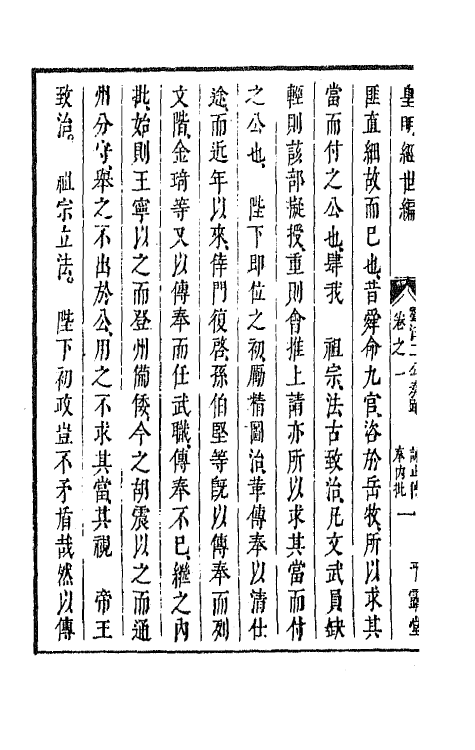 皇明經世編
卷之一
奉內批
一
平露堂
匪直細故而已也昔舜命九官咨於岳牧所以求其
當而付之公也肆我 祖宗法古致治凡文武員缺
輕則該部擬授重則會推上請亦所以求其當而付
之公也 陛下即位之初勵精圖治革傳奉以清仕
途而近年以來倖門復啓孫伯堅等旣以傳奉而列
文階金琦等又以傳奉而任武職傳奉不已繼之內
批始則王寧以之而登州備倭今之胡震以之而通
州分守舉之不出於公用之不求其當其視 帝王
致治 祖宗立法 陛下初政豈不矛盾哉然以傳